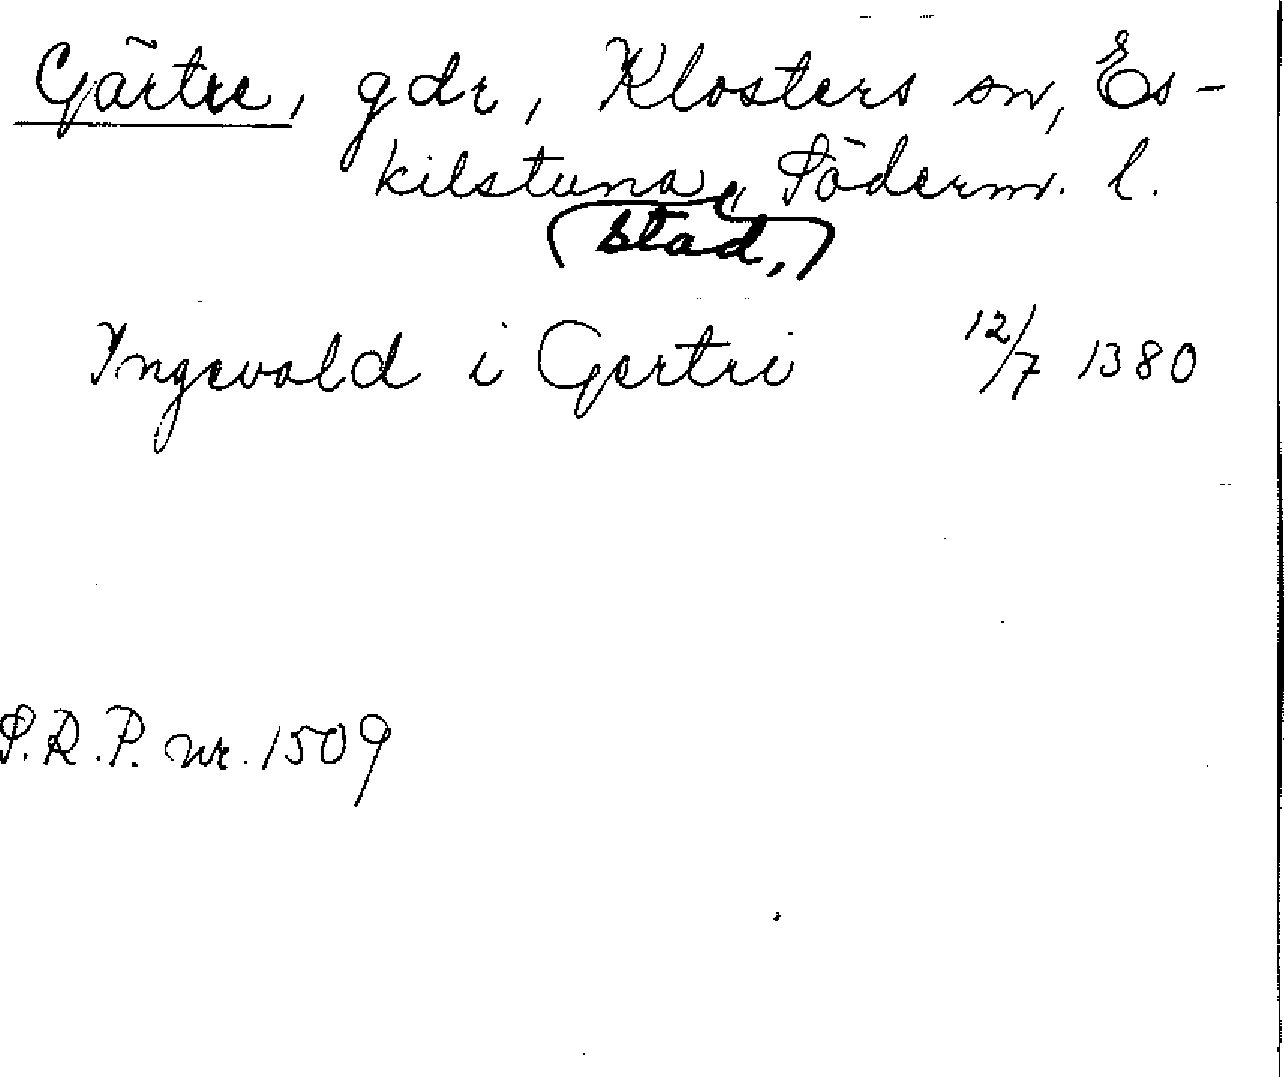 Gärtre, gdr, Klosters sn, Es-
kilstuna, Söderm. l.
stad,
Ingevald i Gertri 12/7 1380
S.R.P. nr. 1509